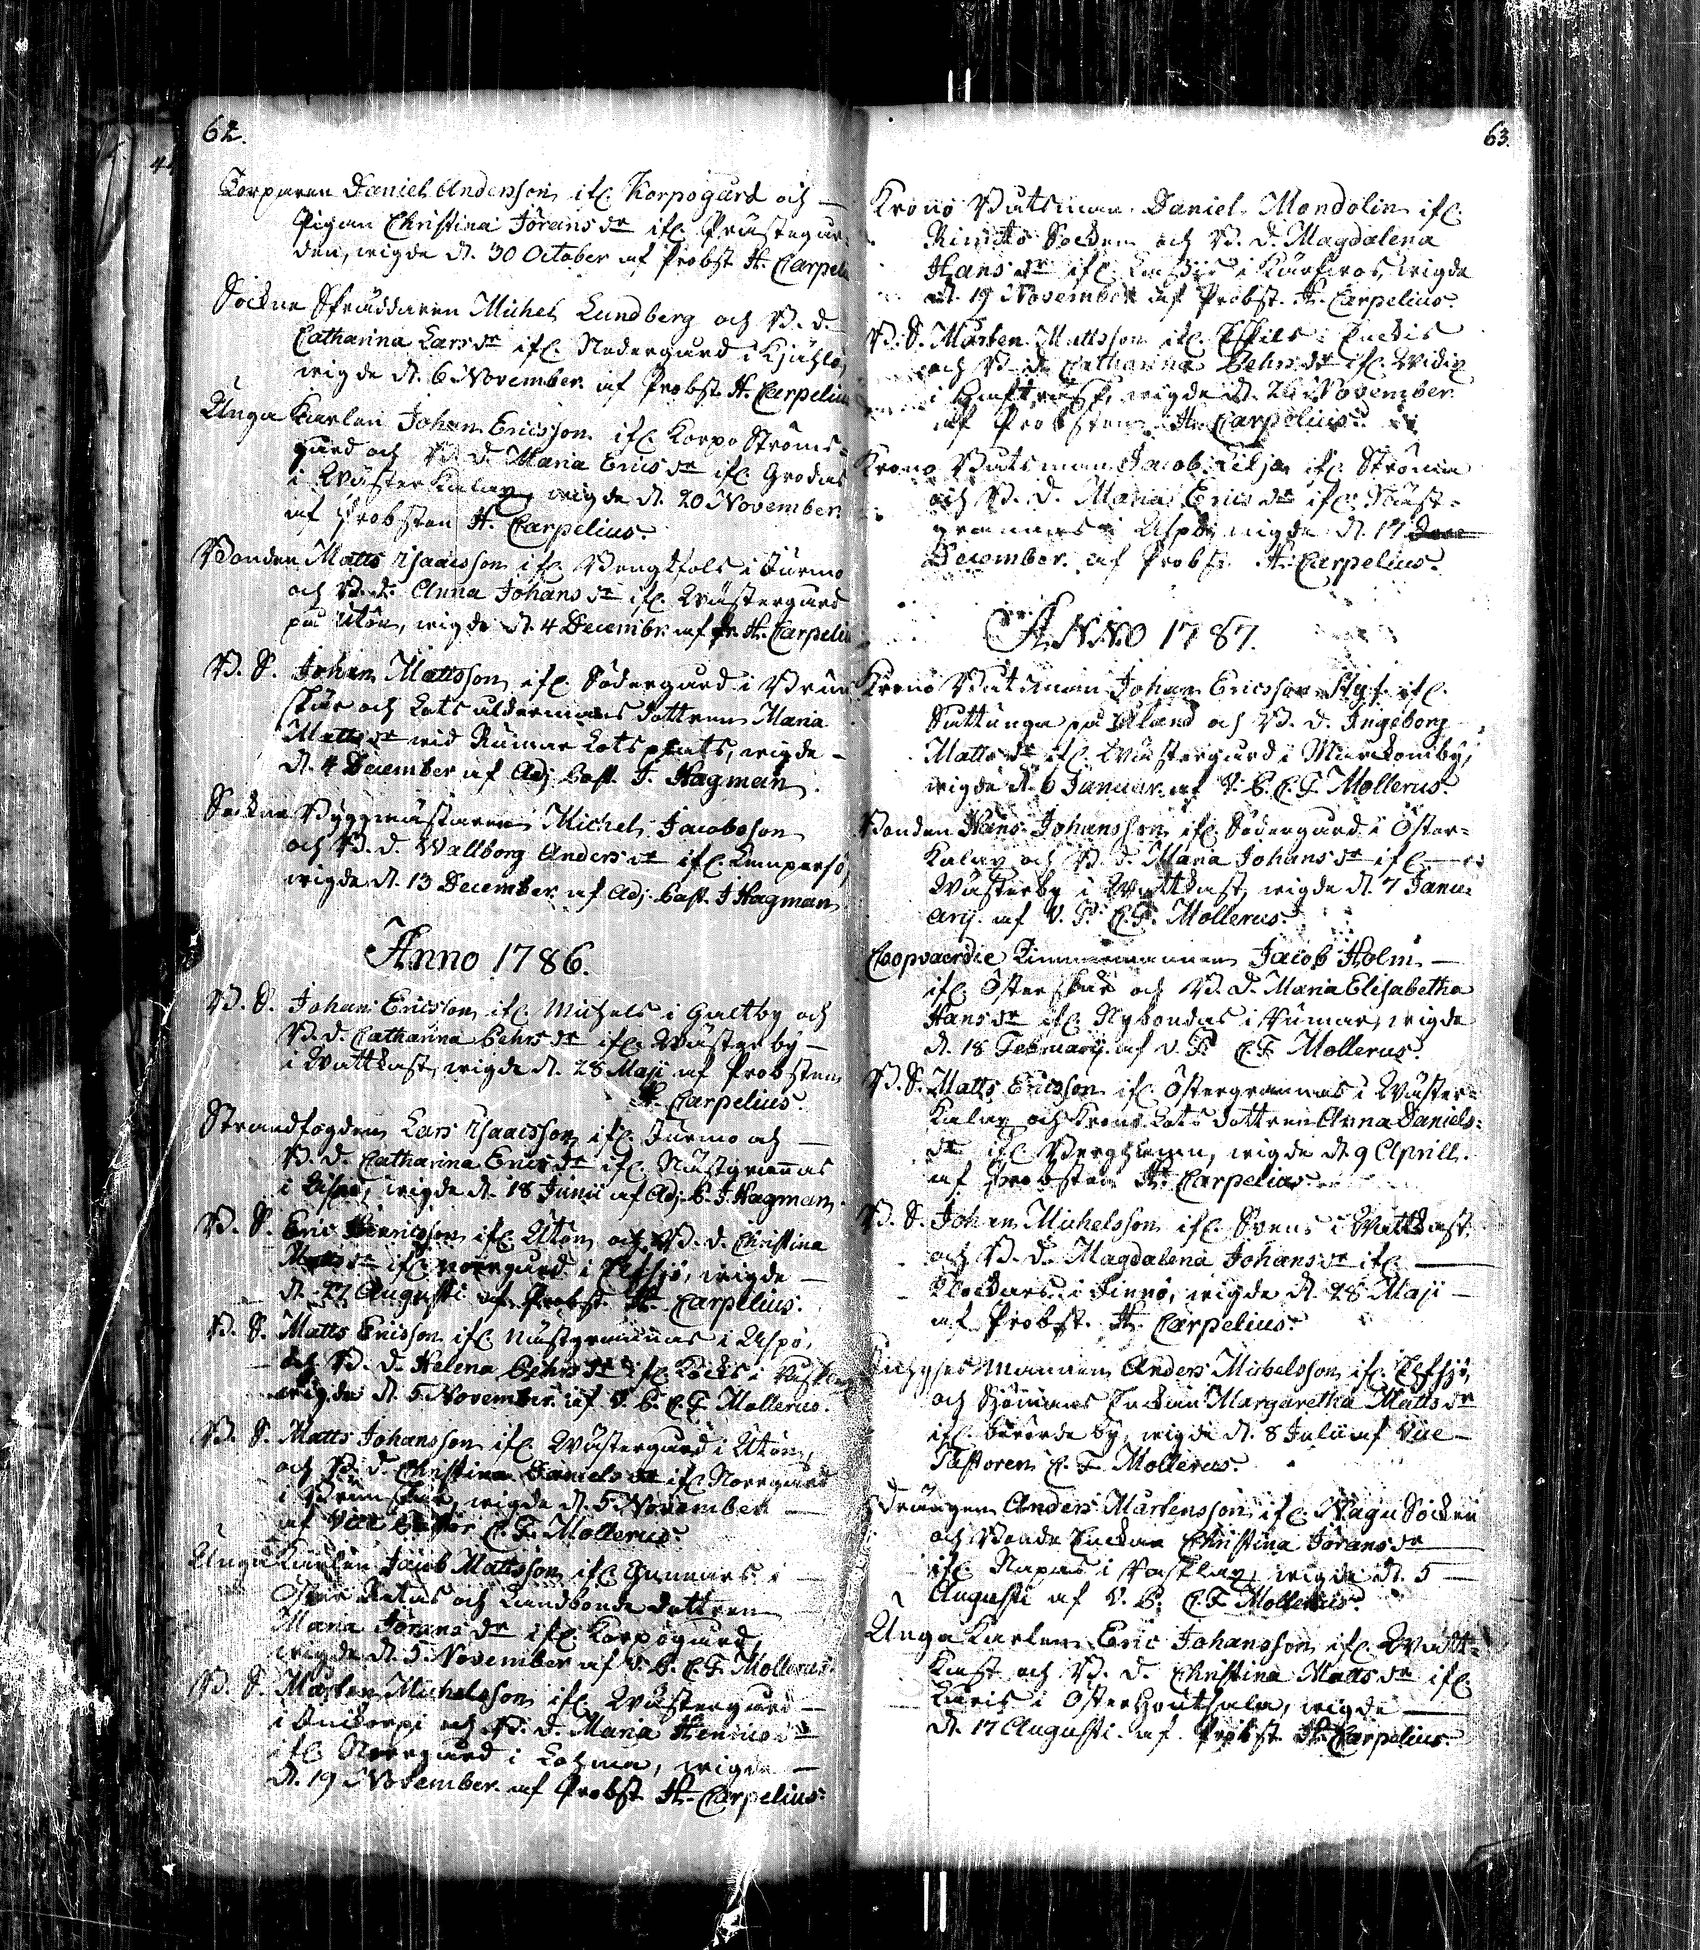 62.
Torparen Daniel Andersson ifr. Korpogård och
Pigan Christina Jöransdr ifr. Prästegår-
den, wigde d. 30 October af Probst H. Carpeli
Sockne Skräddaren Michel Lundberg och B. d.
Catharina Larsdr ifr. Nedergård i Kjählö,
wigde d. 6 November af Probst H. Carpelius
Unga Karlen Johan Ericsson ifr. Korpo Ströms-
gård och B. d. Maria Ericsdr ifr. Grodas
i Wäster Kalax, wigde d. 20 November
af Probsten H. Carpelius.
Bonden Matts Isaacsson ifr. Bengtsols i Jurmo
och B. d. Anna Johansdr ifr. Wästergård
på Utön, wigde d. 4 Decembr. af Pr. H. Carpeli
B. S. Johan Mattsson ifr. Södergård i Brun
skär och Lots åldermans dottren Maria
Mattsdr wid Rumar Lotsplats, wigde
d. 4 December af Adj. Past. J. Hagman.
Sockne Byggmästaren Michel Jacobsson
och B. d. Wallborg Andersdr ifr. Lempersö,
wigde d. 13 December af Adj. Past. J Hagman
Anno 1786.
B. S. Johan Ericsson ifr. Michels i Galtby och
B. d. Catharina Pehrsdr ifr. Wästerby
i Wattkast, wigde d. 28 Maji af Probsten
H. Carpelius.
Strandfogden Lars Isaacsson ifr. Jurmo och
B. d. Catharina Ericsdr ifr. Nästgrannas
i Aspö, wigde d. 18 Junii af Adj. P. J. Hagman.
B. S. Eric Henricsson ifr. Utön och B. d. Christina
Mattsdr ifr. Norrgård i Elfsjö, wigde
d. 27 Augusti af Probst H. Carpelius.
B. S. Matts Ericsson ifr. Nästgrannas i Aspö,
och B. d. Helena Pehrsdr ifr. Kocks i
wigde d. 5 November af V. P. C. F. Mollerus.
B. S. Matts Johansson ifr. Wästergård i Utön,
och B. d. Christina Danielsdr ifr. Norrgård
i Brunskär, wigde d. 5 November
af Vice Pastor C. F. Mollerus.
Unga Karlen Jacob Mattsson ifr. Gunnars i
Öfver Retais och Landbonde dottren
Maria Jöransdr ifr. Korpogård,
wigde d. 5 November af V. P. C. F. Mollerus.
B. S. Mårten Michelsson ifr. Wästergård
i och B. d. Maria Henricsdr
ifr. Norrgård i Lohma, wigde
d. 19 November af Probst H. Carpelius.
63.
Krono Båtsman Daniel Mandolin ifr.
Rimito Socken och B. d. Magdalena
Hansdr ifr. i wigde
d. 19 November af Probst H. Carpelius.
B. S. Mårten Mattsson ifr. Eskils i
och B. d. Catharina Pehrsdr ifr.
i wigde d. 26 November
af Probsten H. Carpelius.
Krono Båtsman Jacob Lilja ifr. Strömma
och B. d. Maria Ericsdr ifr. Näst-
grannas i Aspö, wigde d. 17
December af Probst H. Carpelius.
ANNO 1787.
Krono Båtsman Johan Ericsson ifr.
Suttunga på Åland och B. d. Ingeborg
Mattsdr ifr. Wästergård i Marskomby,
wigde d. 6 Januar. af V. P. C. F. Mollerus.
Bonden Hans Johansson ifr. Södergård i Öster-
Kalax och B. d. Maria Johansdr ifr.
Wästerby i Wattkast, wigde d. 7 Janu-
arij. af V. P. C. F. Mollerus.
Coopvaerdie Timmermannen Jacob Holm
ifr. Österskär och B. d. Maria Elisabetha
Hansdr ifr. Nybondas i Rumar, wigde
d. 18 Februarij. af V. P. C. F. Mollerus.
B. S. Matts Ericsson ifr. Östergrannas i Wäster-
Kalax och Krono Lots dottren Anna Daniels-
dr ifr. Berghamn, wigde d. 9 Aprill.
af Probsten H. Carpelius.
B. S. Johan Michelsson ifr. Svens i Wattkast
och B. d. Magdalena Johansdr ifr.
Klockars i Finnö, wigde d. 28 Maji
af Probst. H. Carpelius.
Anders Michelsson ifr. Elfsjö,
och Sjömans Enkan Margaretha Mattsdr
ifr. berörde by, wigde d. 8 Julii af Vice
Pastoren C. F. Mollerus.
Drängen Anders Mårtensson ifr. Nagu Socken
och Bonde Enkan Christina Jöransdr
ifr. Napas i wigde d. 5
Augusti af V. P. C. F. Mollerus.
Unga Karlen Eric Johansson ifr. Watt-
kast och B. d. Christina Mattsdr ifr.
i Öster wigde
d. 17 Augusti af Probst H. Carpelius.